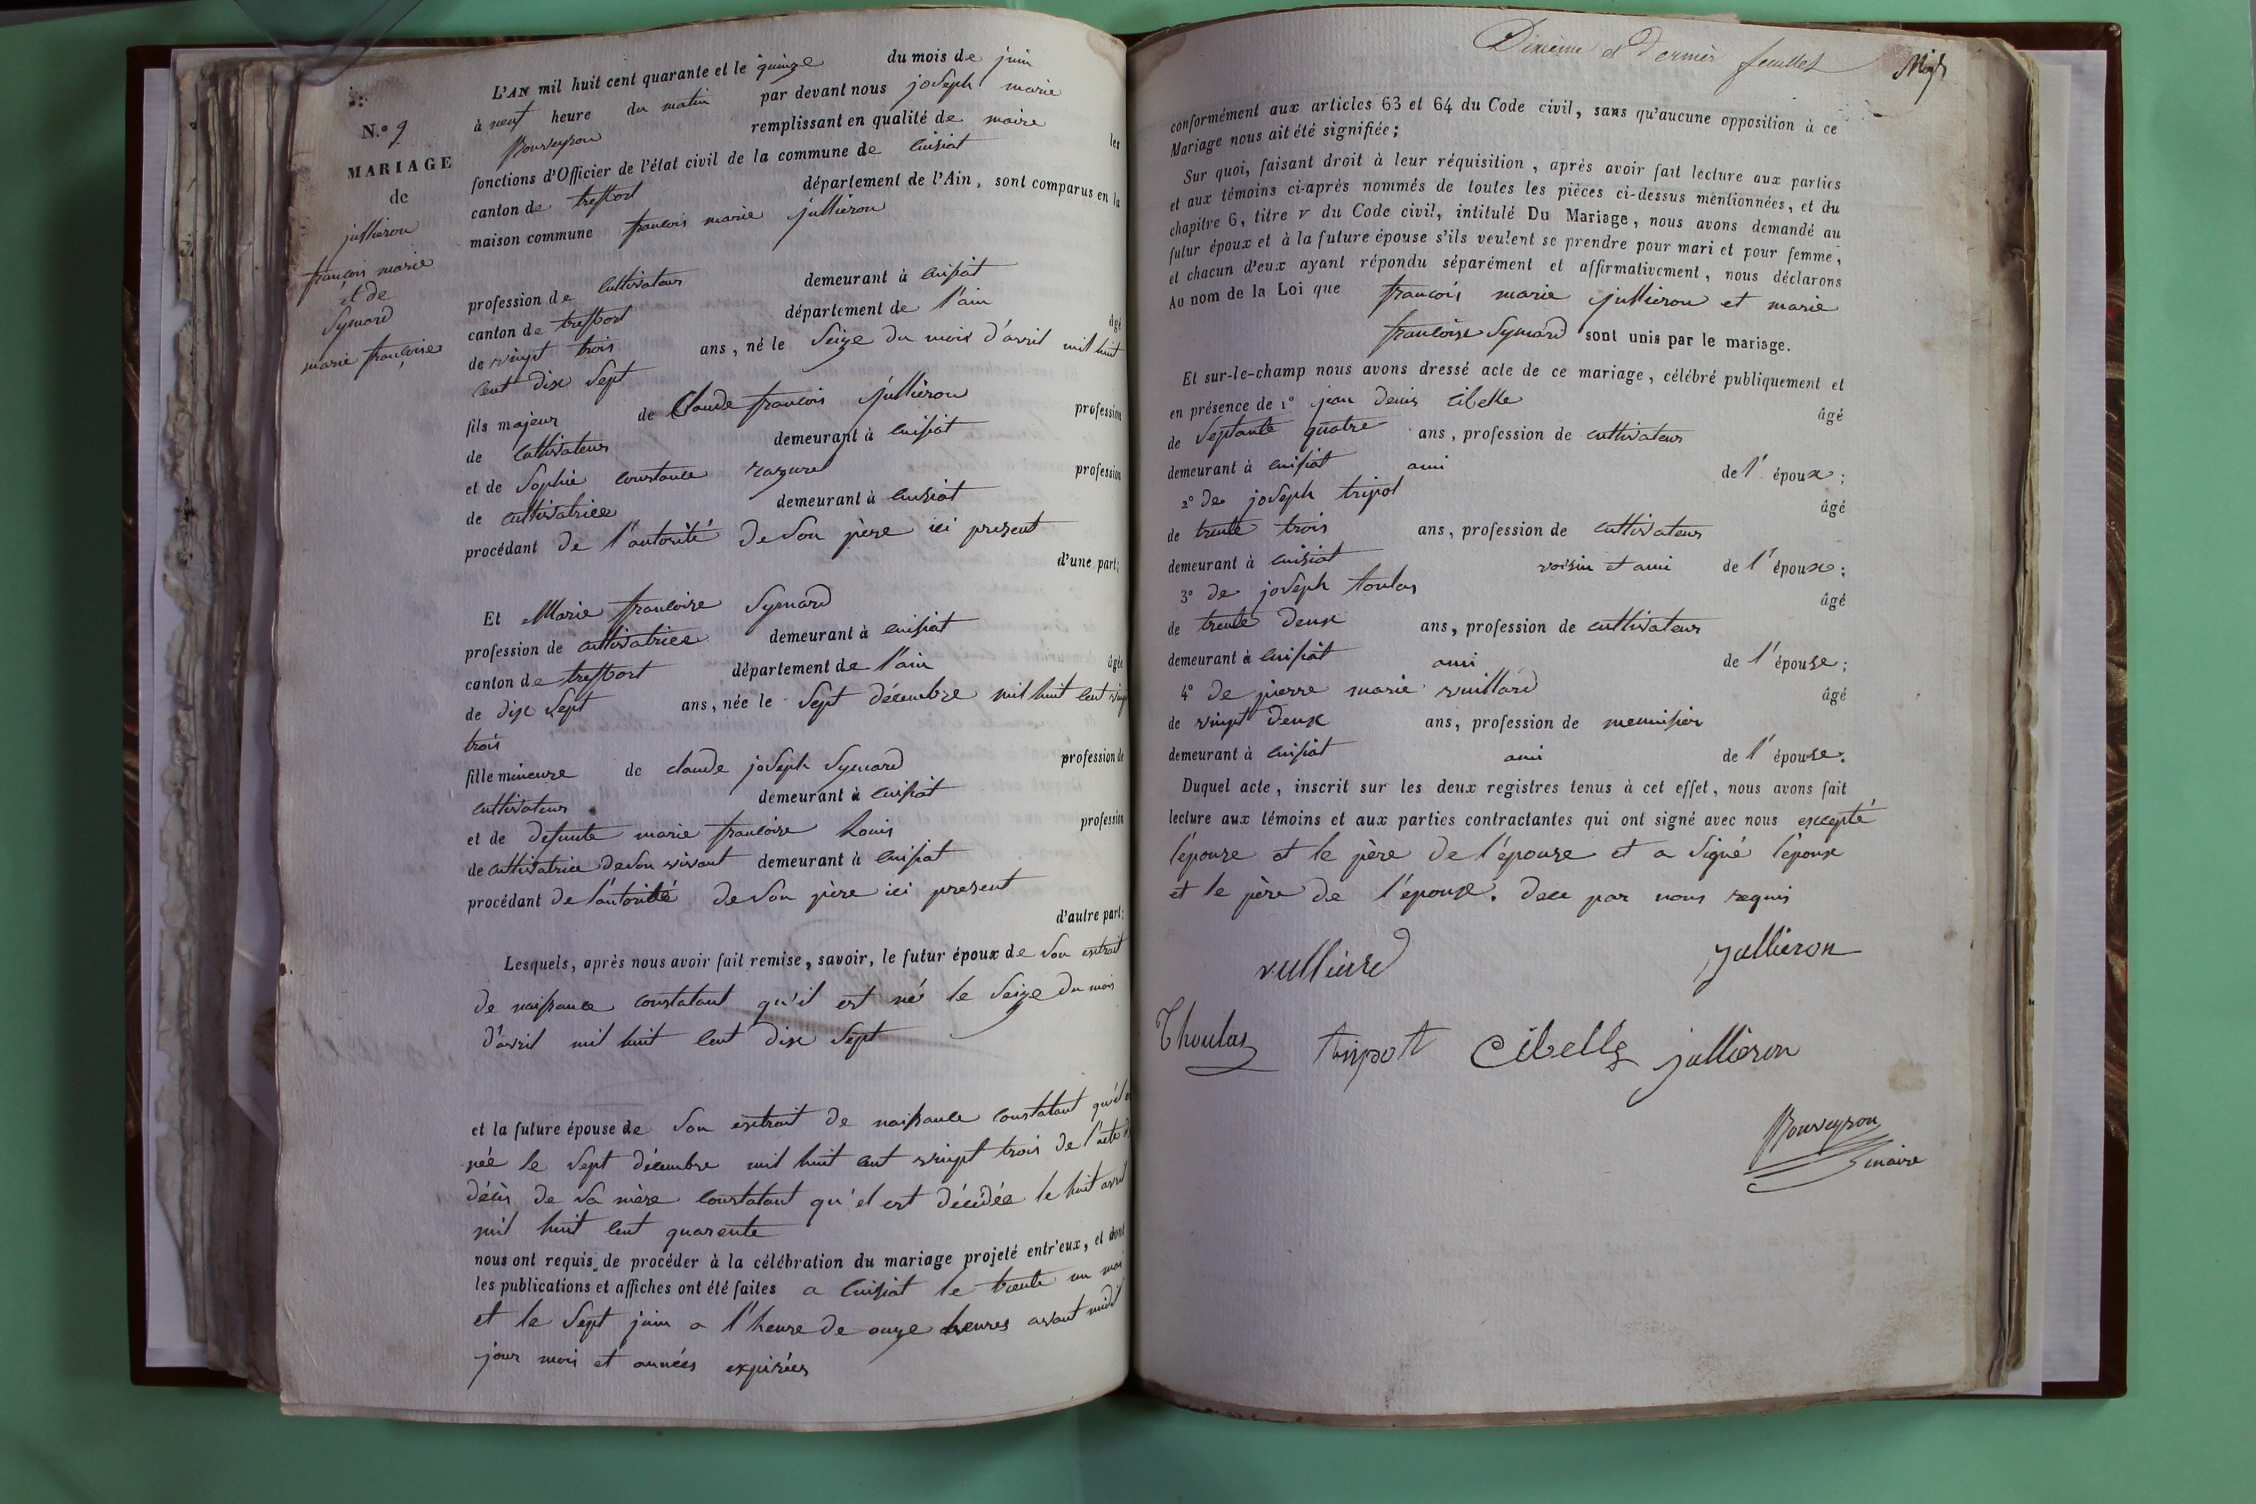 N.° 9
MARIAGE
de
jullieron
françois marie
et de
Symard
marie françoise
L'AN mil huit cent quarante et le quinze du mois de juin
à neuf heure du matin par devant nous joseph marie
Bouveyron remplissant en qualité de maire les
fonctions d'Officier de l'état civil de la commune de Cuisiat
canton de treffort département de l'Ain, sont comparus en la
maison commune françois marie jullieron
profession de Cultivateur demeurant à Cuisiat
canton de treffort département de l'ain âgé
de vingt trois ans, né le Seize du mois d'avril mil huit
Cent dix Sept
fils majeur de Claude françois jullieron profession
de Cultivateur demeurant à Cuisiat
et de Sophie Constance profession
de cultivatrice demeurant à Cuisiat
procédant de l'autorité de Son père ici présent
d'une part;
Et Marie françoise Symard
profession de cultivatrice demeurant à Cuisiat
canton de treffort département de l'ain âgée
de dix Sept ans, née le Sept décembre mil huit Cent vingt
trois
fille mineure de claude joseph Symard profession de
cultivateur demeurant à Cuisiat
et de defunte marie françoise Louis profession
de cultivatrice de Son vivant demeurant à Cuisiat
procédant de l'autorité de Son père ici present
d'autre part;
Lesquels, après nous avoir fait remise, savoir, le futur époux de Son extrait
de naissance constatant qu'il est né le Seize du mois
d'avril mil huit Cent dix Sept
et la future épouse de Son extrait de naissance constatant qu'el est
née le Sept décembre mil huit cent vingt trois de l'acte de
décès de Sa mère Constatant qu'el est décédée le huit avril
mil huit Cent quarente
nous ont requis de procéder à la célébration du mariage projeté entr'eux, et dont
les publications et affiches ont été faites a Cuisiat le trente un mai
et le Sept juin a l'heure de onze heures avant midi
jour mois et années expirées
Dixième et Dernier feuillet
conformément aux articles 63 et 64 du Code civil, sans qu'aucune opposition à ce
Mariage nous ait été signifiée;
Sur quoi, faisant droit à leur réquisition, après avoir fait lecture aux parties
et aux témoins ci-après nommés de toutes les pièces ci-dessus mentionnées, et du
chapitre 6, titre v du Code civil, intitulé Du Mariage, nous avons demandé au
futur époux et à la future épouse s'ils veulent se prendre pour mari et pour femme,
et chacun d'eux ayant répondu séparément et affirmativement, nous déclarons
Au nom de la Loi que françois marie jullieron et marie
françoise Symard sont unis par le mariage.
Et sur-le-champ nous avons dressé acte de ce mariage, célébré publiquement et
en présence de 1° jean denis Cibelle âgé
de Septante quatre ans, profession de cultivateur
demeurant à Cuisiat ami de l'époux;
2° de joseph tripot âgé
de trente trois ans, profession de cultivateur
demeurant à Cuisiat voisin et ami de l'époux;
3° de joseph toulas âgé
de trente deux ans, profession de cultivateur
demeurant à Cuisiat ami de l'épouse;
4° de pierre marie vuillard âgé
de vingt deux ans, profession de menuisier
demeurant à Cuisiat ami de l'épouse.
Duquel acte, inscrit sur les deux registres tenus à cet effet, nous avons fait
lecture aux témoins et aux parties contractantes qui ont signé avec nous excepté
l'épouse et le père de l'épouse et a Signé l'époux
et le père de l'époux. dece par nous requis
vullierd Jullieron
Thoulas tripot Cibelle jullieron
Bouveyron
maire